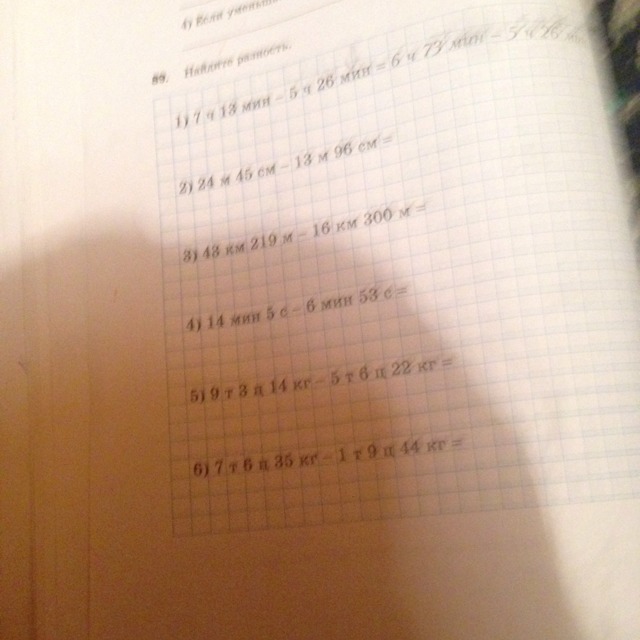 4) Если
89. Найдите разность.
1) 7 ч 13 мин – 5 ч 26 мин = 6 ч 73 мин – 5 ч 26
2) 24 м 45 см – 13 м 96 см =
3) 43 км 219 м – 16 км 300 м =
4) 14 мин 5 с – 6 мин 53 с =
5) 9 т 3 ц 14 кг – 5 т 6 ц 22 кг =
6) 7 т 6 ц 35 кг – 1 т 9 ц 44 кг =